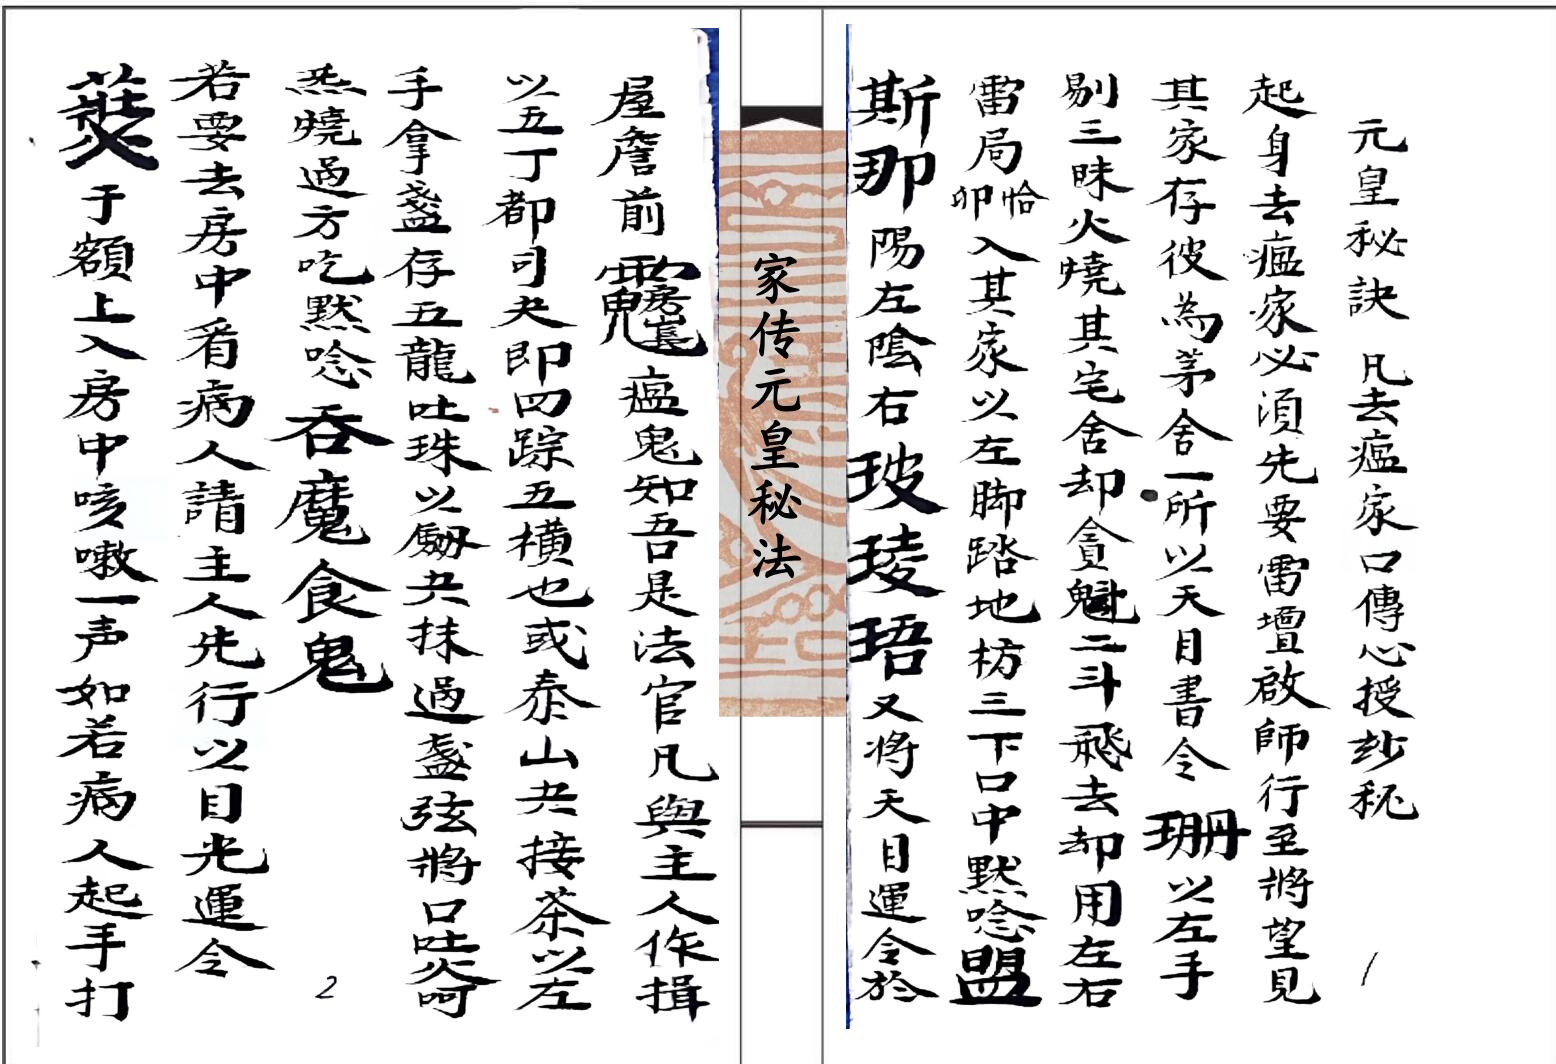 元皇秘訣 凡去瘟家口傳心授玅秘
起身去瘟家必須先要雷壇啟師行至將望見
其家存彼為茅舍一所以天目書令珊以左手
剔三昧火燒其宅舍却貪魁二斗飛去却用左右
雷局恰卯入其家以左脚踏地枋三下口中默唸盟
斯那陽左陰右玻琰珸又將天目運令於
1
家传元皇秘法
屋簷前瘟鬼知吾是法官凡與主人作揖
以五丁都司夬即四踪五橫也或泰山夬接茶以左
手拿盞存五龍吐珠以劒夬抹過盞弦將口吐火呵
炁燒過方吃默唸吞魔食鬼
若要去房中看病人請主人先行以目光運令
于額上入房中咳嗽一声如若病人起手打
2